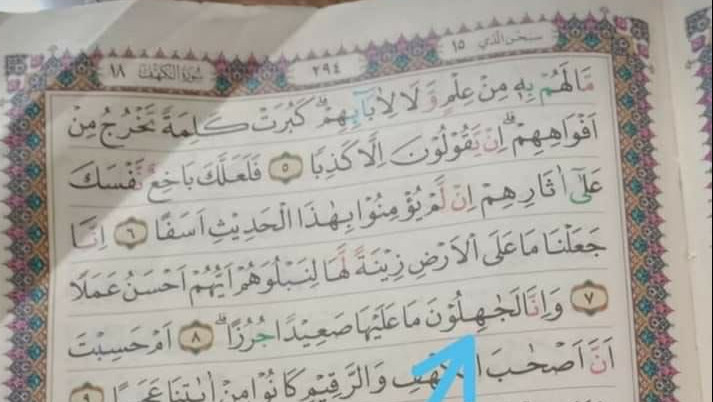 سبحن الذي ١٥
٢٩٤
سورة الكهف ١٨
مَا لَهُمْ بِهٖ مِنْ عِلْمٍ وَّ لَا لِاٰبَآئِهِمْ ۗ كَبُرَتْ كَلِمَةً تَخْرُجُ مِنْ
اَفْوَاهِهِمْ ۗ اِنْ يَّقُوْلُوْنَ اِلَّا كَذِبًا ٥ فَلَعَلَّكَ بَاخِعٌ نَّفْسَكَ
عَلٰٓى اٰثَارِهِمْ اِنْ لَّمْ يُؤْمِنُوْا بِهٰذَا الْحَدِيْثِ اَسَفًا ٦ اِنَّا
جَعَلْنَا مَا عَلَى الْاَرْضِ زِيْنَةً لَّهَا لِنَبْلُوَهُمْ اَيُّهُمْ اَحْسَنُ عَمَلًا
٧ وَاِنَّا لَجٰهِلُوْنَ مَا عَلَيْهَا صَعِيْدًا جُرُزًا ۗ ٨ اَمْ حَسِبْتَ
اَنَّ اَصْحٰبَ الْكَهْفِ وَالرَّقِيْمِ كَانُوْا مِنْ اٰيٰتِنَا عَجَبًا ٩